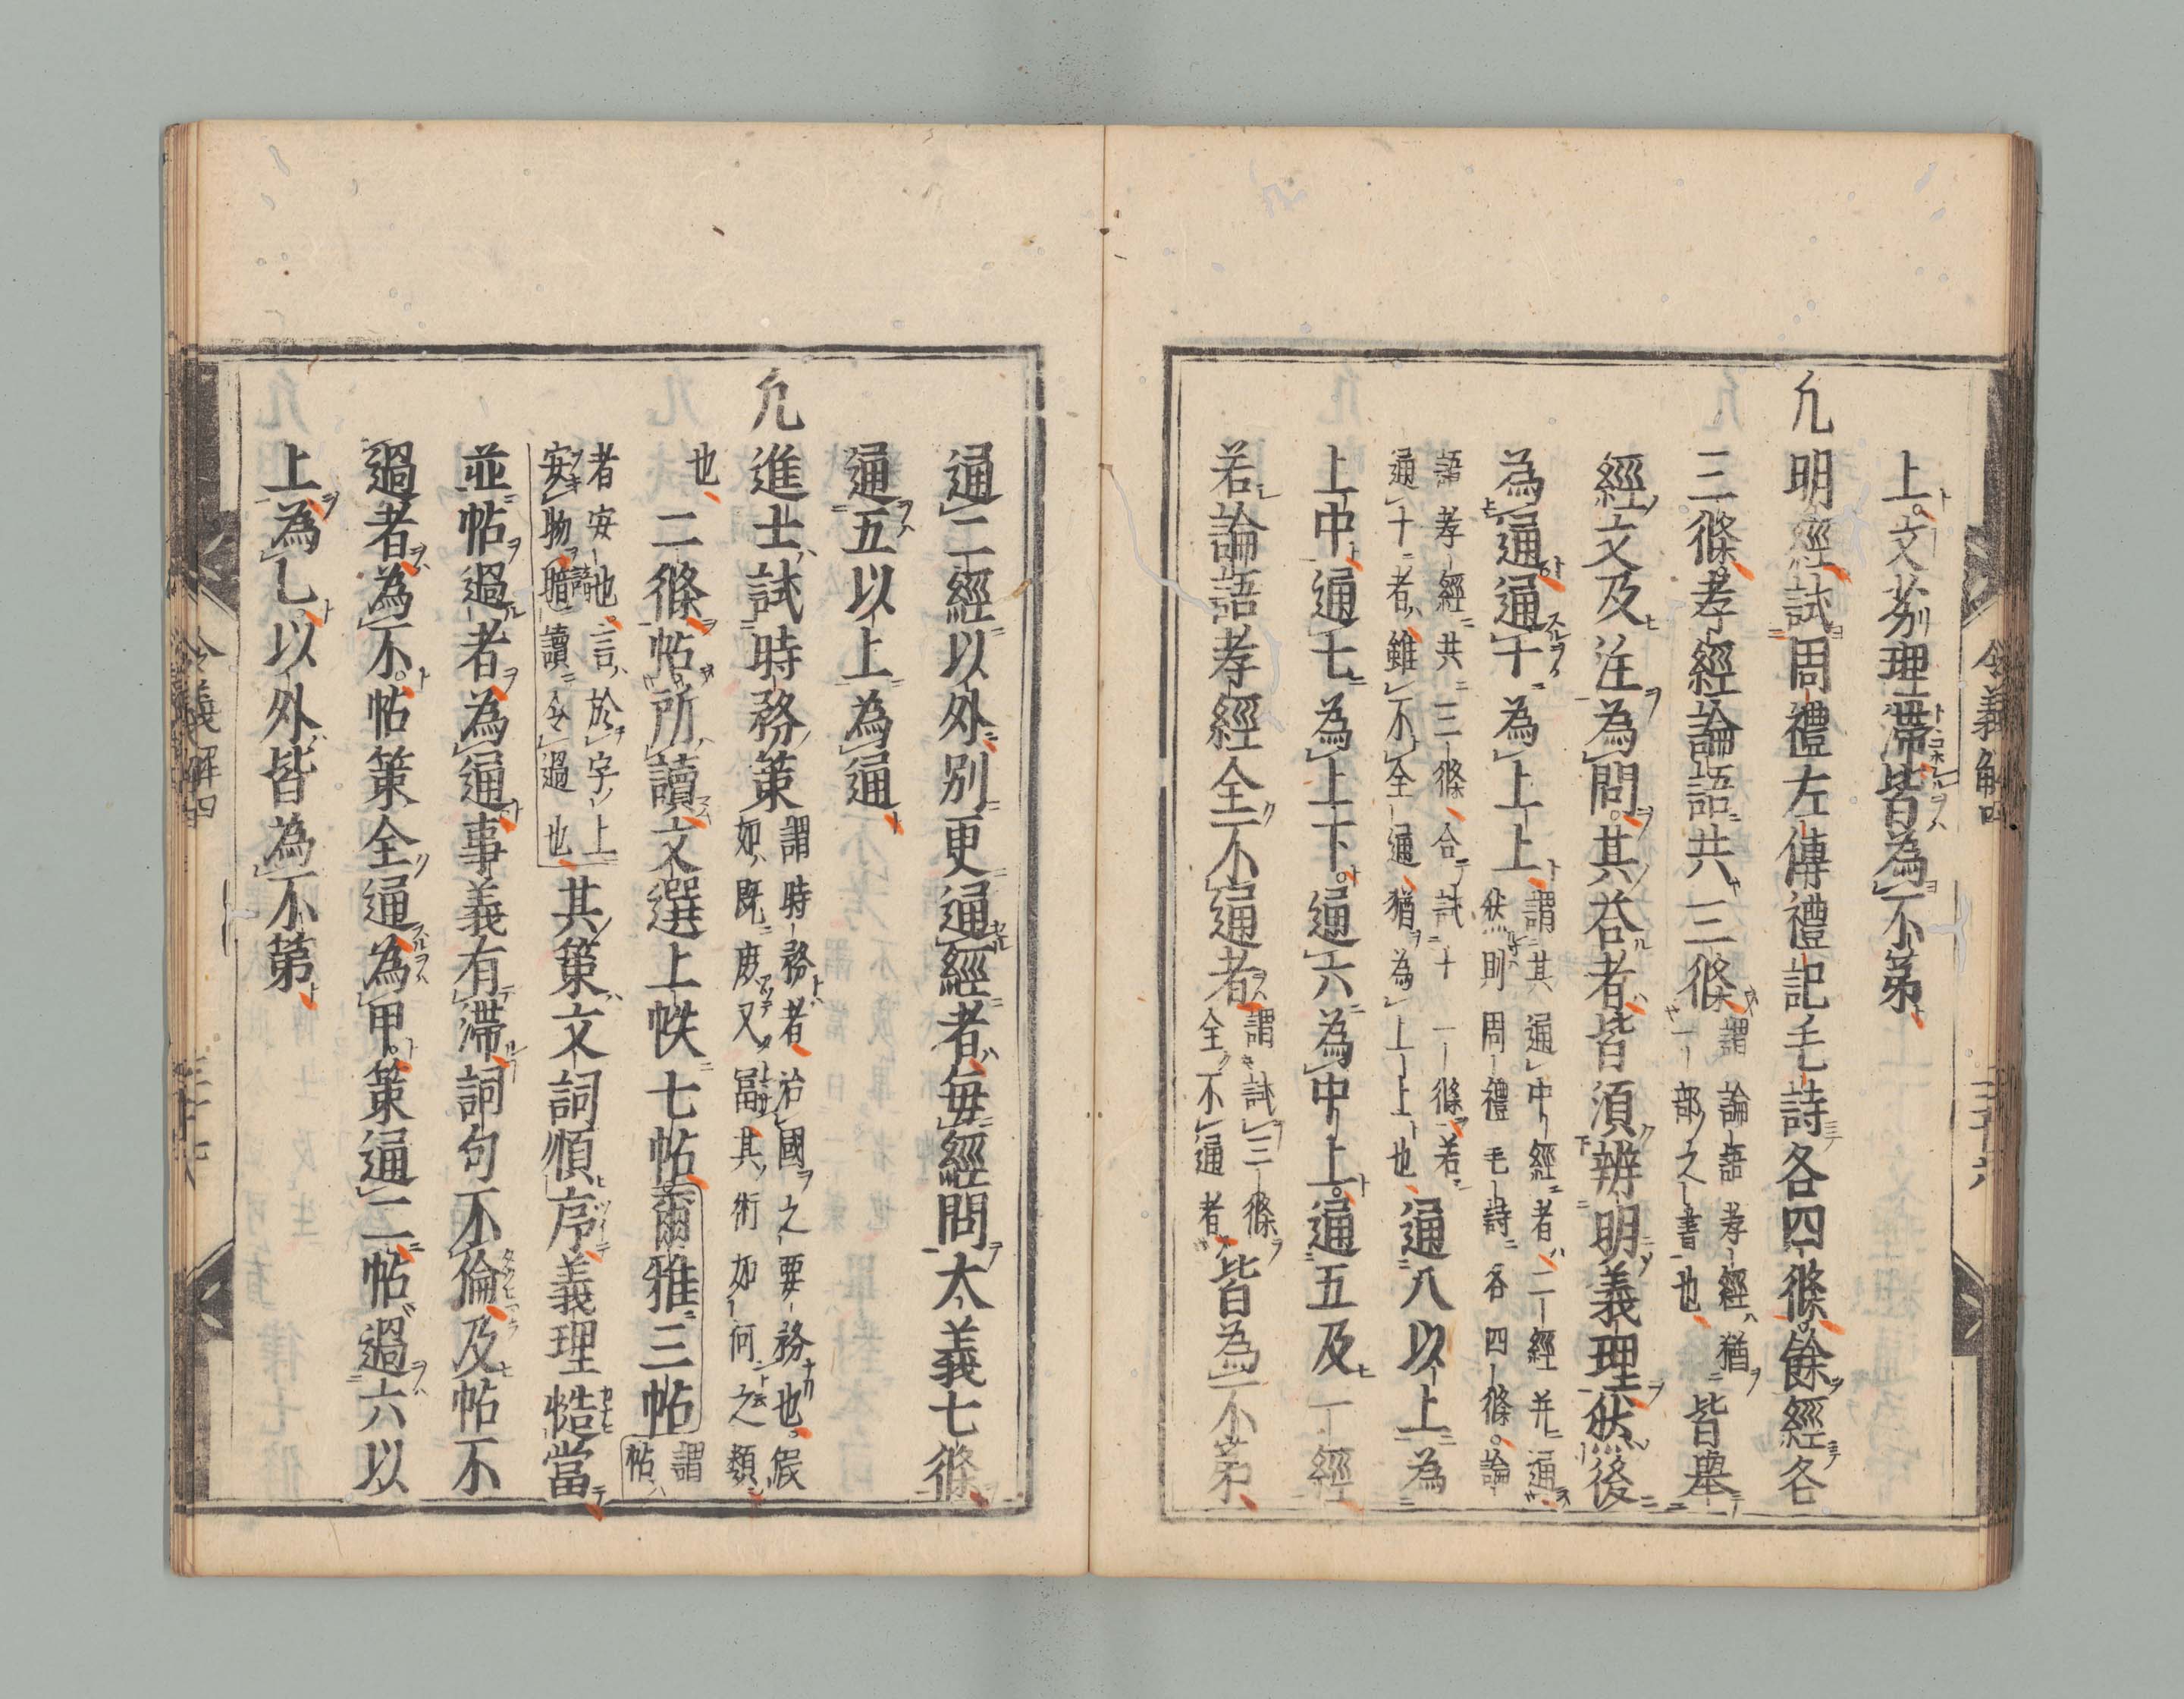 上文劣理滯皆為不第
凢明經試周禮左傳禮記毛詩各四條餘經各
三條孝經論語共三條謂論語孝經猶一部之書也皆舉
經文及注為問其荅者皆須辨明義理然後
為通通十為上上謂其通中經者二經并通然則周禮毛詩各四條論
語孝經共三條合試十一條若通十者雖不全通猶為上上也通八以上為
上中通七為上下通六為中上通五及一經
若論語孝經全不通者謂試三條全不通者皆為不第
令義解四
三十六
通二經以外別更通經者每經問大義七條
通五以上為通
凢進士試時務策謂時務者治國之要務也假如既庶又冨其術如何之類
也二條帖所讀文選上帙七帖爾雅三帖謂帖
者安也言於字上安物暗讀令過也其策文詞順序義理慥當
並帖過者為通事義有滯詞句不倫及帖不
過者為不帖策全通為甲策通二帖過六以
上為乙以外皆為不第
令義解四